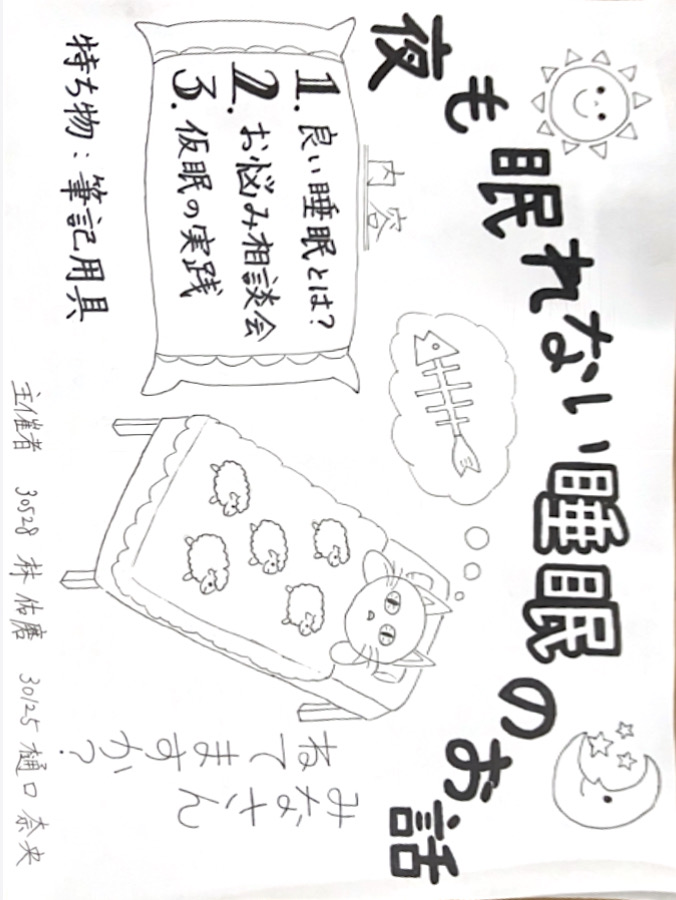 夜も眠れない睡眠のお話
内容
1. 良い睡眠とは?
2. お悩み相談会
3. 仮眠の実践
みなさん
ねてますか?
持ち物:筆記用具
主催者 30528 林 佑磨 30125 樋口 奈央